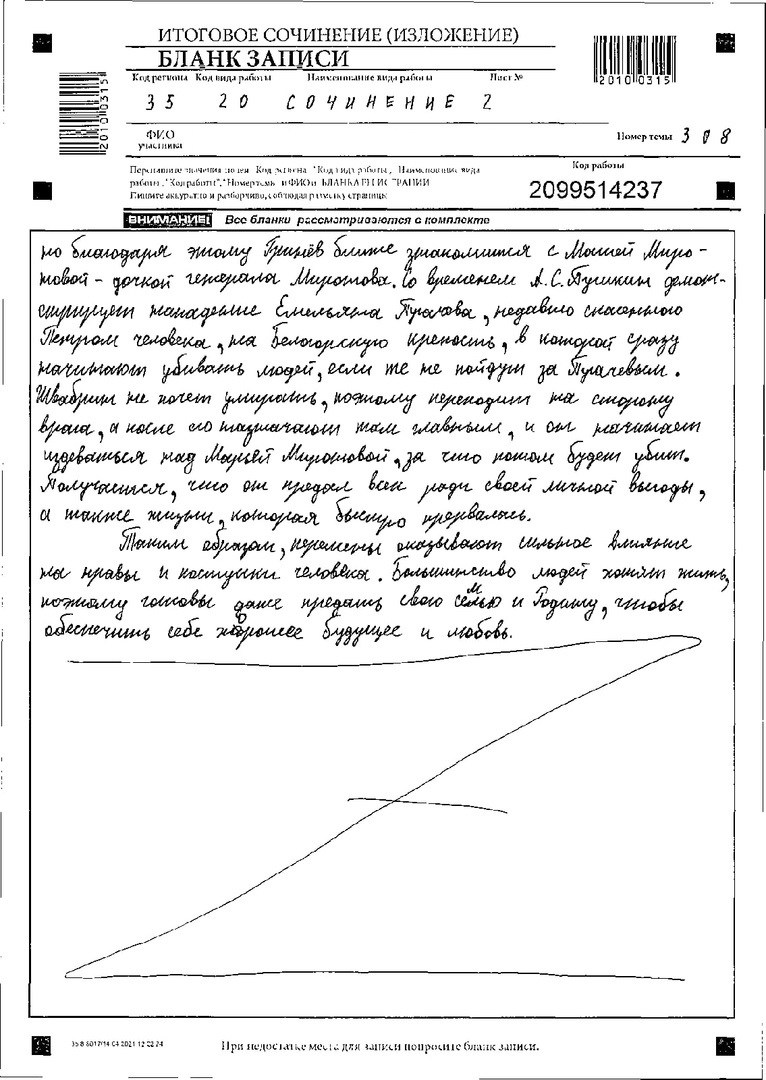 ИТОГОВОЕ СОЧИНЕНИЕ (ИЗЛОЖЕНИЕ)
БЛАНК ЗАПИСИ
2010 0315
2010 0315
Код региона Код вида работы Наименование вида работы Лист №
35 20 СОЧИНЕНИЕ 2
ФИО участника
Номер темы 308
Код работы
Перепишите значения полей "Код региона", "Код вида работы", "Наименование вида
работы", "Код работы", "Номер темы" и ФИО из БЛАНКА РЕГИСТРАЦИИ
Пишите аккуратно и разборчиво, соблюдая разметку страницы
2099514237
ВНИМАНИЕ! Все бланки рассматриваются в комплекте
но благодаря этому Гринёв ближе знакомится с Машей Миро-
новой – дочкой генерала Миронова. Со временем А.С.Пушкин демон-
стрирует нападение Емельяна Пугачёва, недавно спасенного
Петром человека, на Белогорскую крепость, в которой сразу
начинают убивать людей, если те не пойдут за Пугачевым.
Швабрин не хочет умирать, поэтому переходит на сторону
врага, а после его назначают там главным, и он начинает
издеваться над Марьей Мироновой, за что потом будет убит.
Получается, что он предал всех ради своей личной выгоды,
а также жизни, которая быстро прервалась.
Таким образом, перемены оказывают сильное влияние
на нравы и поступки человека. Большинство людей хотят жить,
поэтому готовы даже предать свою семью и Родину, чтобы
обеспечить себе хорошее будущее и любовь.
При недостатке места для записи попросите бланк записи.